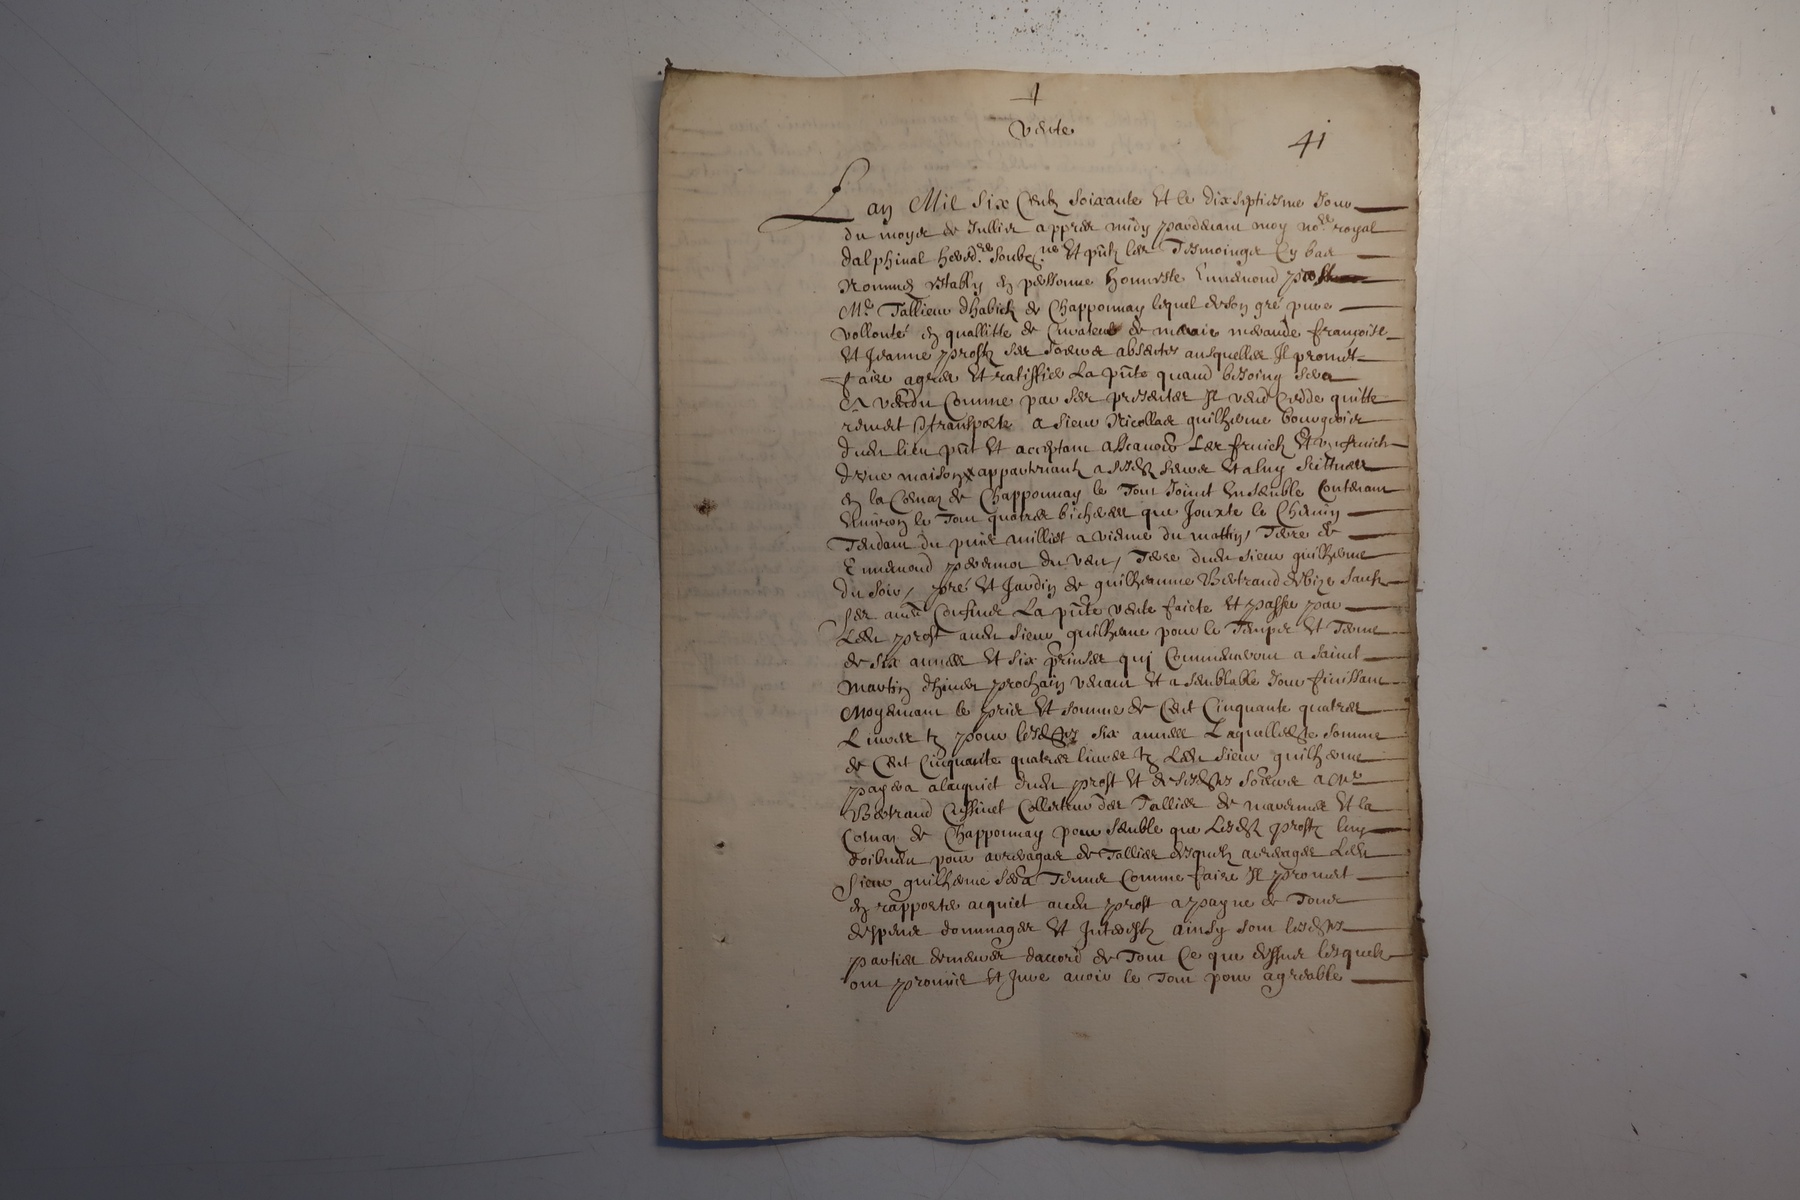 Vente
41
Lan Mil six Centz soixante Et le dixseptiesme Jour
du moys de Jullier appres midy pardevant moy no.re royal
dalphinal hered.re soubz.né Et pntz les Tesmoings Cy bas
Nommes Estably en personne honneste Ennemond prost
M.e Tallieur dhabitz de Chapponnay lequel de son gré pure
vollonté en quallitte de Curateur de marie meraude françoise
Et Jeanne prostz ses soeurs absentes ausquelles Il promet
faire agreer Et ratiffier La pnte quand besoing sera
A vendu Comme par ses presentes Il vend Cedde quitte
remet & transporte a sieur Nicollas guilherme bourgeois
dudit lieu pnt Et acceptant ascavoir Les fruictz Et usufruictz
dune maison appartenantz a sesd. soeurs Et a luy scittues
en la Comun de Chapponnay le Tout Joinct Ensemble Contenant
Environ le Tout quatres bicherees que Jouxte le Chemin
Tendant du puis milliet a vienne du mattin, Terre de
Ennemond permot du vent, Terre dudit sieur guilherme
du soir, pré Et Jardin de guilhaume Bertrand de bize sauf
ses autres Confins La pnte vente faicte Et passee par
Ledit prost audit sieur guilherme pour le Temps Et Terme
de six annees Et six prinses qui Commenceront a saint
martin dhiver prochain venant Et a semblable Jour finissant
Moyennant le pris Et somme de Cent Cinquante quatres
Livres tz pour lesdittes six annees Laquelle ditte somme
de Cent Cinquante quatres livres tz Ledit sieur guilherme
payera a lacquict dudit prost Et de sesdittes soeurs a M.e
Bertrand Cuffinet Collecteur des Tallies de marennes Et la
Comun de Chapponnay pour semble que Lesd. prostz luy
doibvent pour arreragas de Tallies desquelz arreages Ledit
sieur guilherme sera Tenu Comme faire Il promet
en rapporter acquict audit prost a payne de Tous
despens dommages Et Interestz ainsy sont lesdittes
parties demeures daccord de Tout Ce que dessus lesquelz
ont promis Et Jure avoir le Tout pour agreable